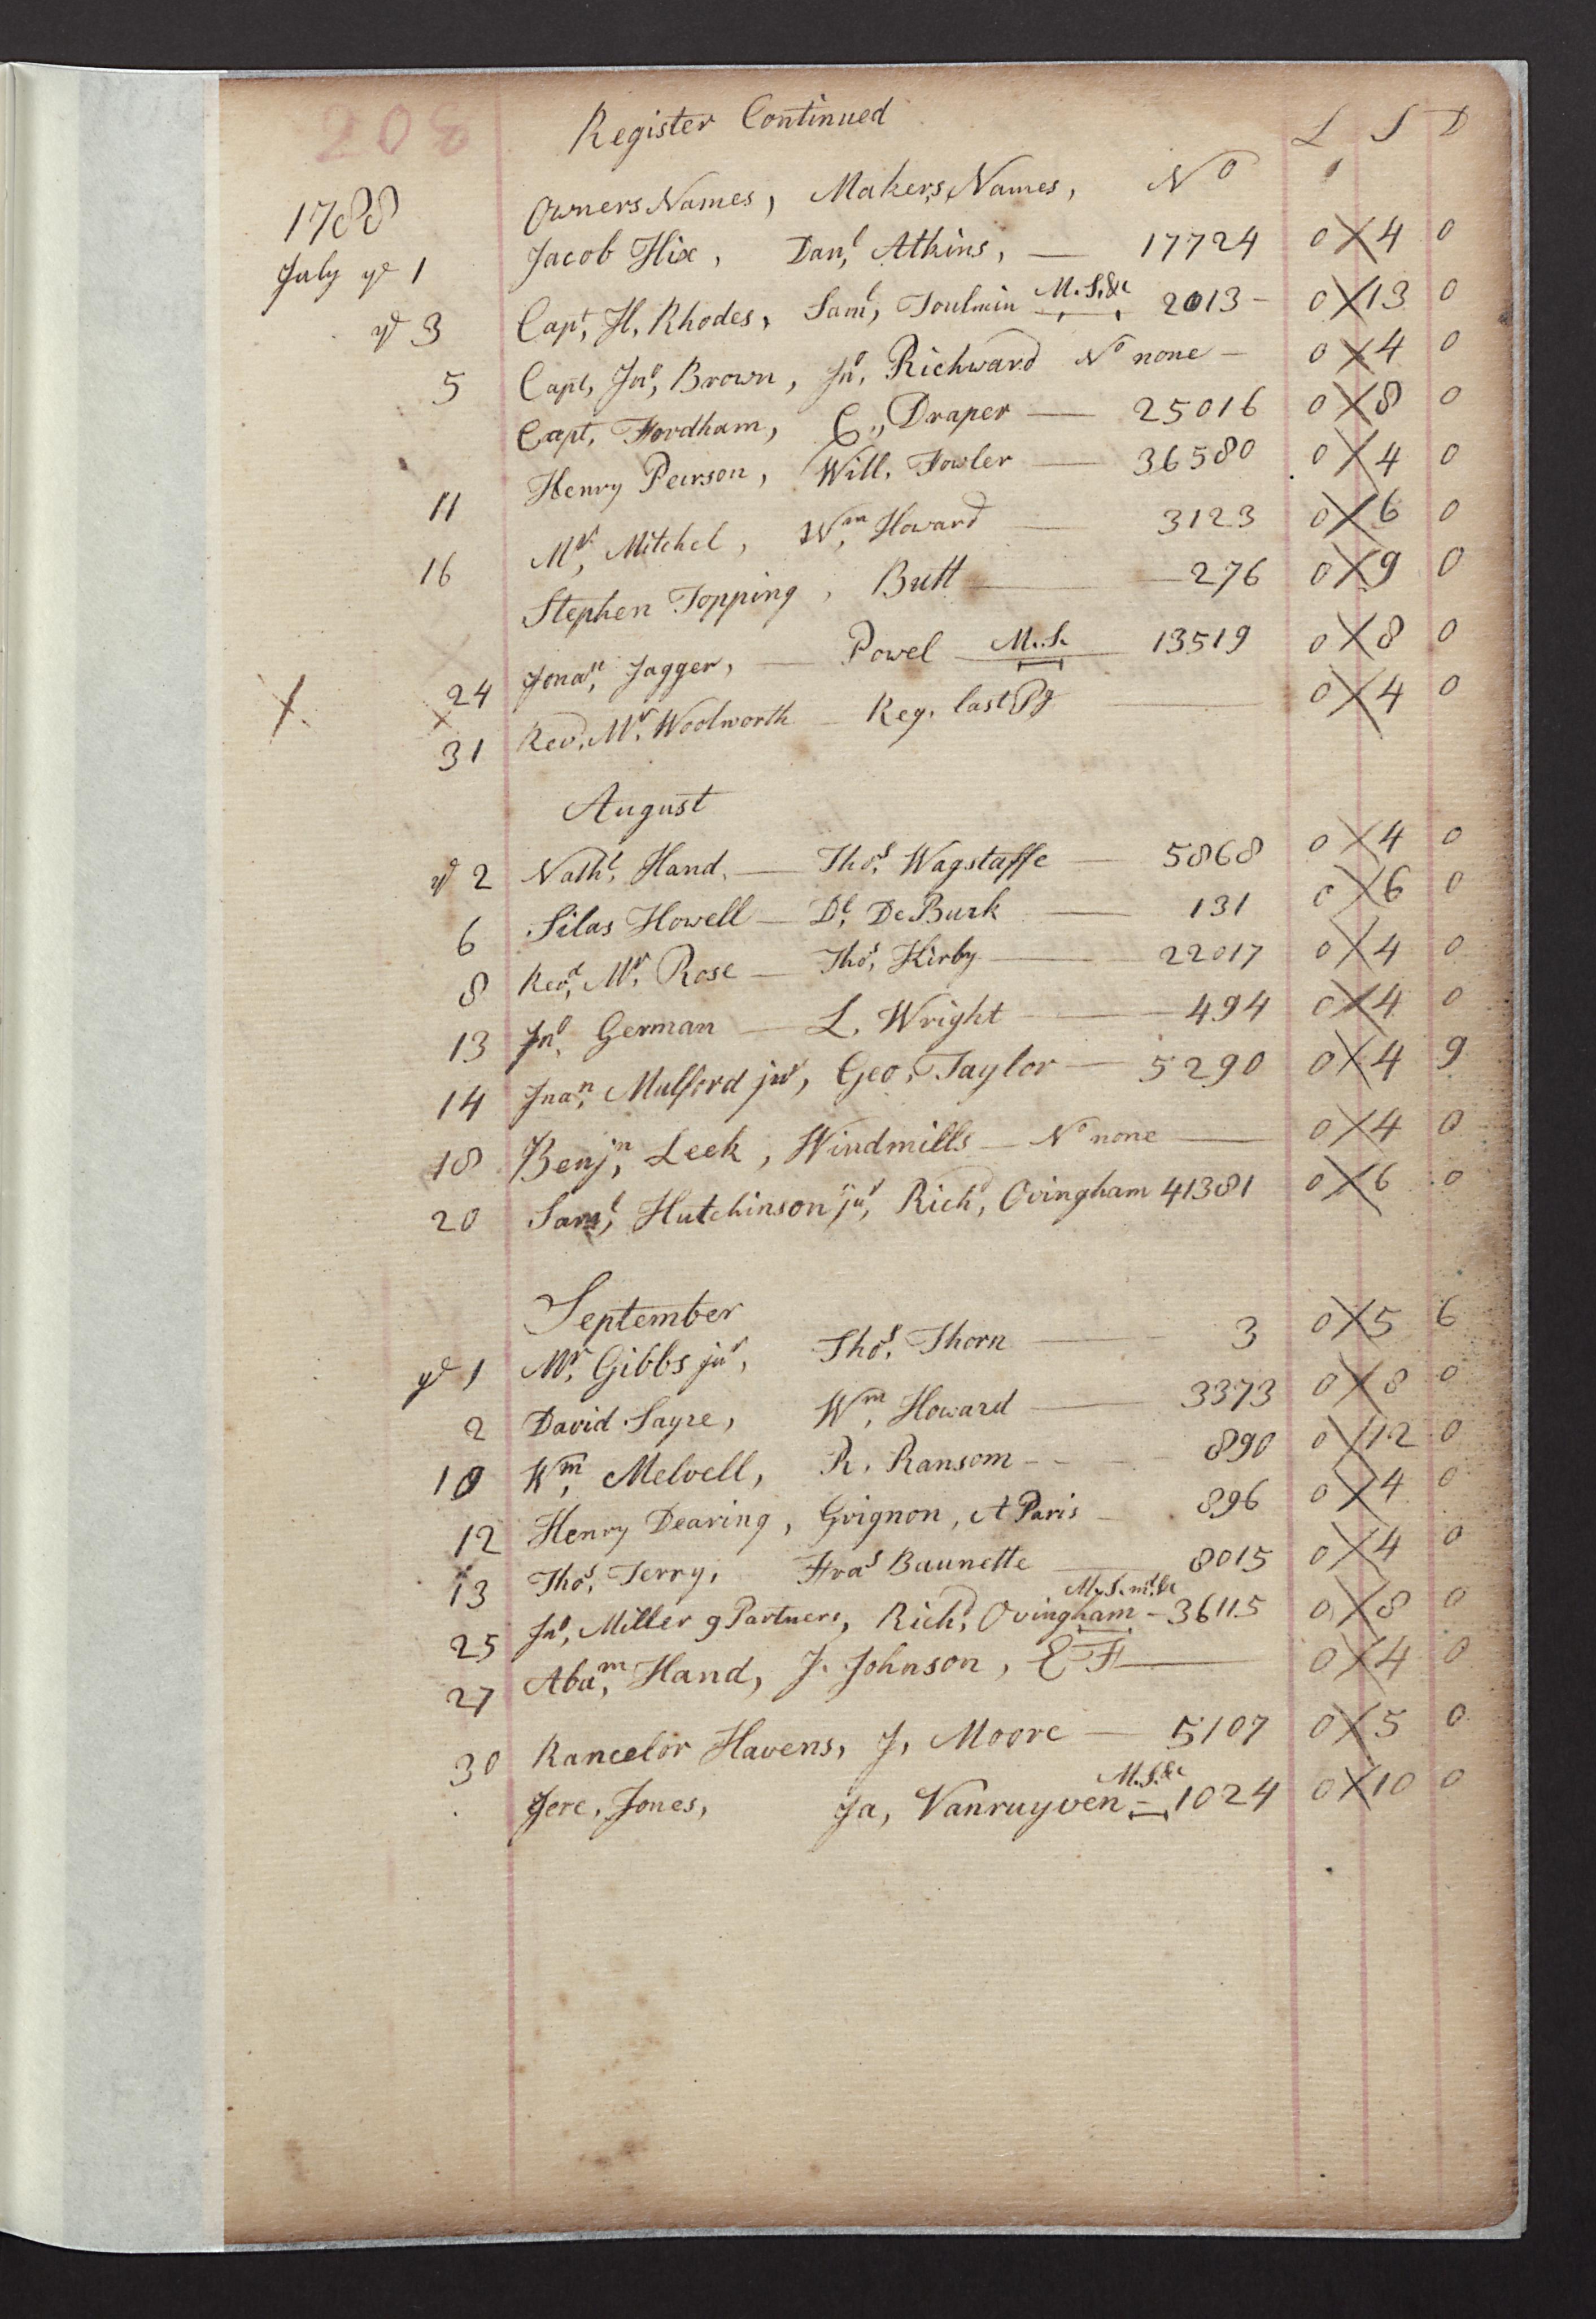 208
Register Continued
L S D
1788 Owners Names, Makers Names, No
July ye 1 Jacob Hix, Danl, Atkins, — 17724 0 4 0
ye 3 Capt, H, Rhodes, Saml, Toulmin M. S. &c 2013 - 0 13 0
5 Capt, Jno, Brown, Jno, Richward No none - 0 4 0
Capt, Fordham, C., Draper — 25016 0 8 0
11 Henry Peirson, Will, Fowler — 36580 0 4 0
16 Mr, Mitchel, Wm, Howard — 3123 0 6 0
Stephen Topping, Butt — 276 0 9 0
24 Jonan, Jagger, — Powel M. S. 13519 0 8 0
X X 31 Revd, Mr, Woolworth — Reg. last Pg — 0 4 0
August
ye 2 Nathl, Hand, — Thos, Wagstaffe — 5868 0 4 0
6 Silas Howell — Dl, De Burk — 131 0 6 0
8 Revd, Mr, Rose — Thos, Kirby — 22017 0 4 0
13 Jno, German — L, Wright — 494 0 4 0
14 Jnan, Mulford jur, Geo, Taylor — 5290 0 4 9
18 Benjn, Leek, Windmills — No none — 0 4 0
20 Saml, Hutchinson jur, Richd, Ovingham 41381 0 6 0
September
ye 1 Mr, Gibbs jur, Thos, Thorn — 3 0 5 6
2 David Sayre, Wm, Howard — 3373 0 8 0
10 Wm, Melvell, R, Ransom - - - 890 0 12 0
12 Henry Dearing, Grignon, A Paris - 896 0 4 0
13 Thos, Terry, Fras Baunette — 8015 0 4 0
25 Jno, Miller & Partners, Richd, Ovingham M. S. &c - 36115 0 8 0
27 Abam, Hand, J. Johnson, E F — 0 4 0
30 Rancelor Havens, J, Moore — 5107 0 5 0
Jere, Jones, Ja, Vanruyven M. S. &c - 1024 0 10 0